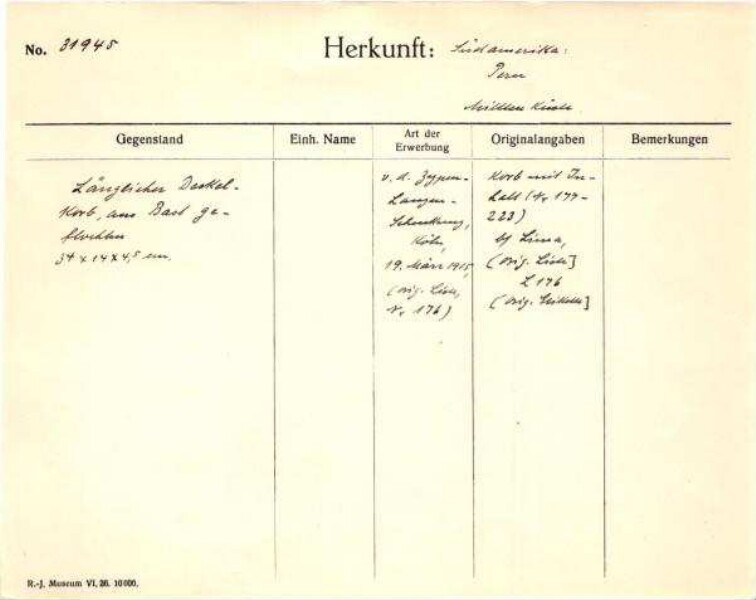 No. 31945
Herkunft: Südamerika:
Peru
Mittlere Küste
Gegenstand
Einh. Name
Art der
Erwerbung
Originalangaben
Bemerkungen
Länglicher Deckel-
korb, aus Bast ge-
flochten
34 x 14 x 4,5 cm.
v. d. Zypen-
Langen-
Schenkung,
Köln,
19. März 1915,
(orig. Liste,
Nr. 176)
Korb mit In-
halt (Nr. 177-
223)
bf Lima,
(orig. Liste]
L 176
(orig. Etikette]
R.-J. Museum VI. 26. 10000.